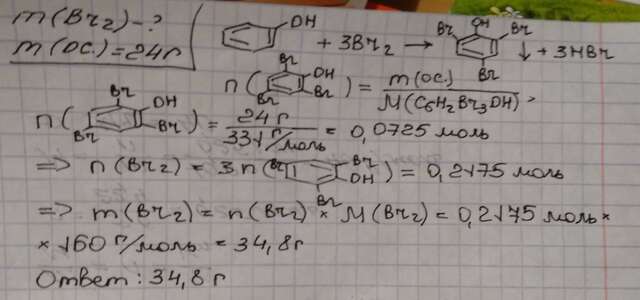 m(Br₂) - ?
m(ос.) = 24г
OH + 3Br₂ → Br OH Br Br ↓ + 3HBr
n( Br OH Br Br ) = m(ос.) / M(C₆H₂Br₃OH) ;
n( Br OH Br Br ) = 24 г / 331 г/моль = 0,0725 моль
=> n(Br₂) = 3n( Br Br OH Br ) = 0,2175 моль
=> m(Br₂) = n(Br₂) × M(Br₂) = 0,2175 моль ×
× 160 г/моль = 34,8г
Ответ: 34,8 г